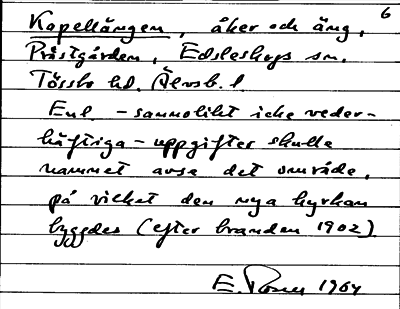 6
Kapellängen, åker och äng,
Prästgården, Edsleskogs sn.
Tössbo hd. Älvsb. l
Enl. - sannolikt icke veder-
häftiga - uppgifter skulle
namnet avse det område,
på vilket den nya kyrkan
byggdes (efter branden 1902)
E. 1964